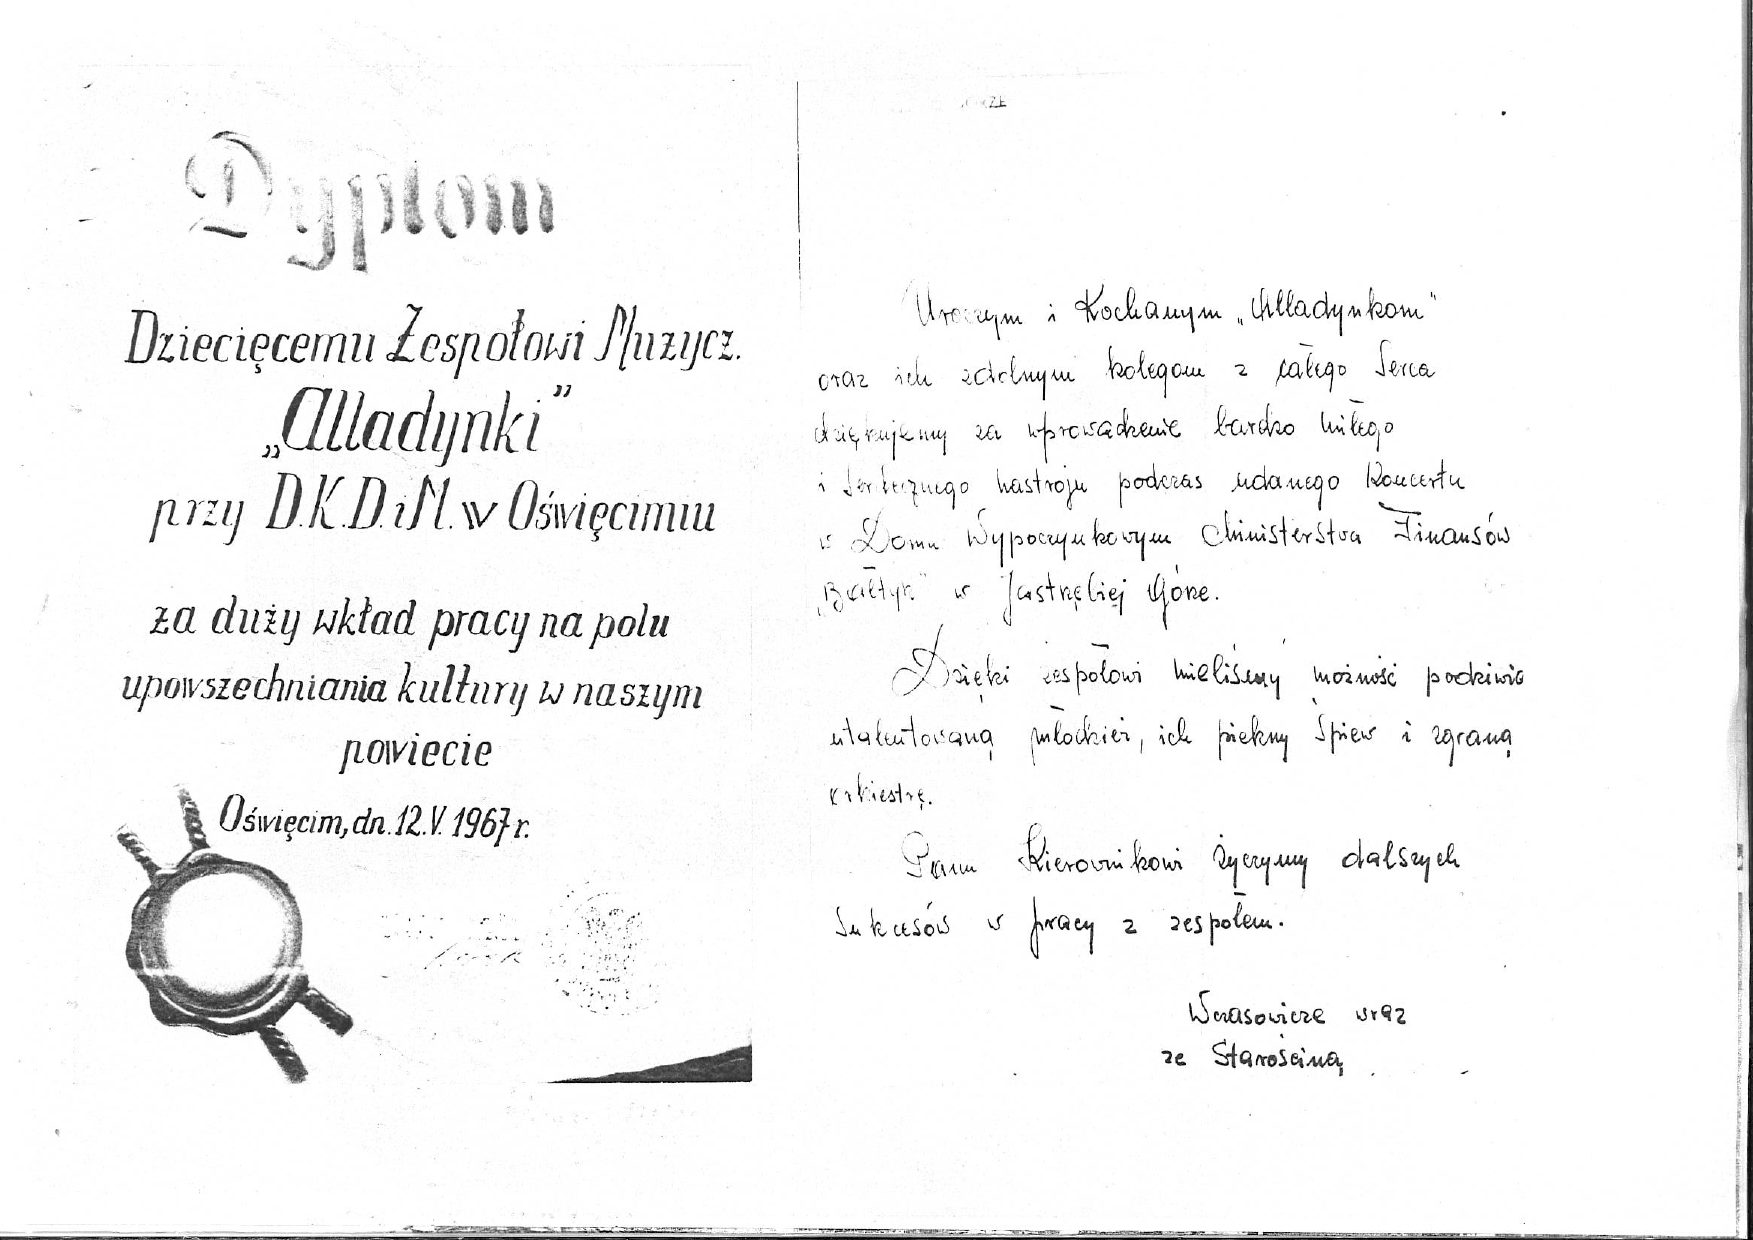 Dyplom
Dziecięcemu Zespołowi Muzycz.
„Alladynki”
przy D.K.D.iM. w Oświęcimiu
za duży wkład pracy na polu
upowszechniania kultury w naszym
powiecie
Oświęcim, dn. 12.V. 1967 r.
Uroczym i Kochanym „Alladynkom”
oraz ich zdolnym kolegom z całego Serca
dziękujemy za wprowadzenie bardzo miłego
i serdecznego nastroju podczas udanego Koncertu
w Domu Wypoczynkowym Ministerstwa Finansów
„Bałtyk” w Jastrzębiej Górze.
Dzięki zespołowi mieliśmy możność podziwia
utalentowaną młodzież, ich piękny Śpiew i zgraną
orkiestrę.
Panu Kierownikowi życzymy dalszych
sukcesów w pracy z zespołem.
Wczasowicze wraz
ze Starościną